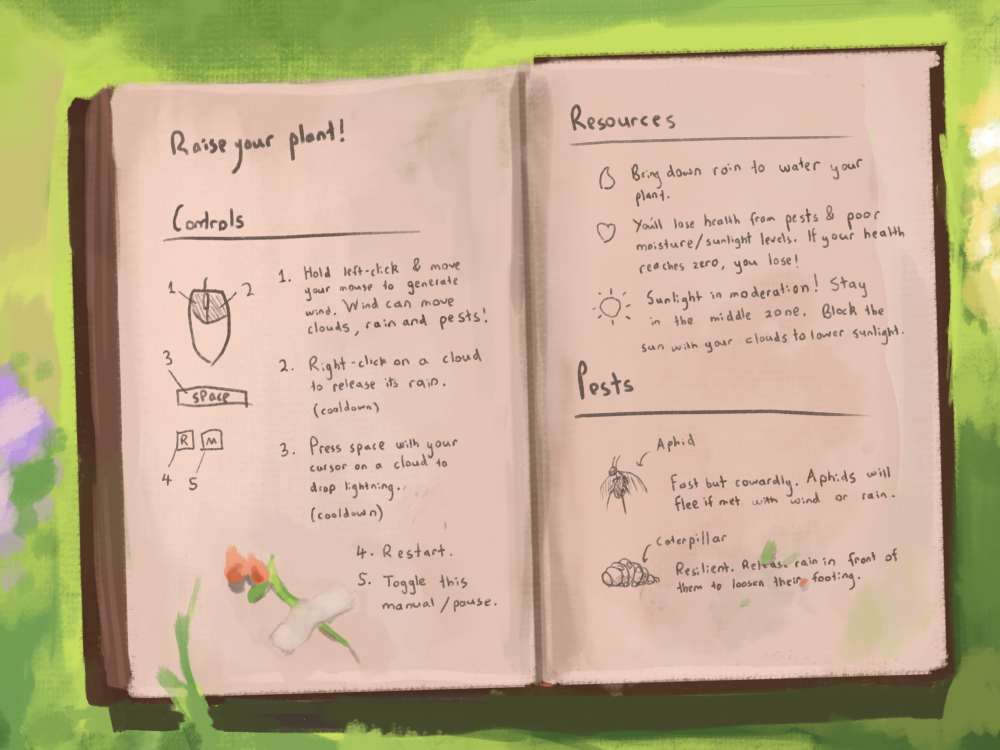 Raise your plant!
Controls
1
2
3
space
R
M
4
5
1. Hold left-click & move
your mouse to generate
wind. Wind can move
clouds, rain and pests!
2. Right-click on a cloud
to release its rain.
(cooldown)
3. Press space with your
cursor on a cloud to
drop lightning.
(cooldown)
4. Restart.
5. Toggle this
manual/pause.
Resources
Bring down rain to water your
plant.
You'll lose health from pests & poor
moisture/sunlight levels. If your health
reaches zero, you lose!
Sunlight in moderation! Stay
in the middle zone. Block the
sun with your clouds to lower sunlight.
Pests
Aphid
Fast but cowardly. Aphids will
flee if met with wind or rain.
Caterpillar
Resilient. Release rain in front of
them to loosen their footing.